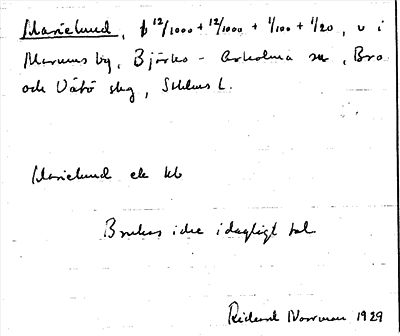 Marielund, 12/1000 + 12/1000 + 1/100 + 1/20, u i
Marums by, Björkö - Arholma sn, Bro
och Vätö skg, Sthlms L.
Marielund ek kb
Brukas icke i dagligt tal
Rickard Norrman 1929